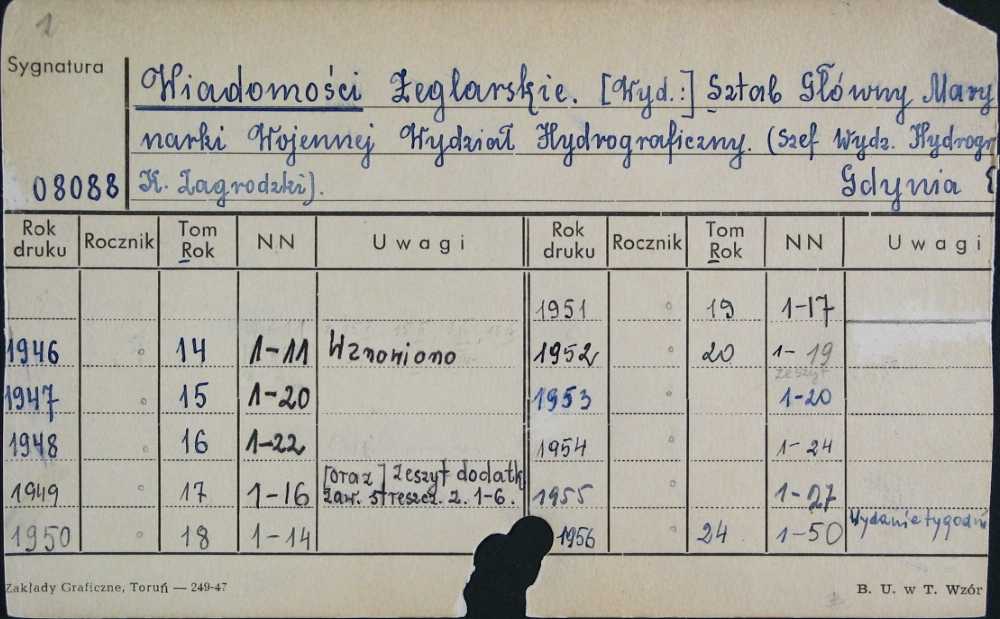 1
Sygnatura
Wiadomości Żeglarskie. [Wyd.:] Sztab Główny Mary
narki Wojennej Wydział Hydrograficzny. (Szef Wydz. Hydrogr
08088 K. Zagrodzki). Gdynia
Rok druku Rocznik Tom Rok NN Uwagi Rok druku Rocznik Tom Rok NN Uwagi
1951 19 1-17
1946 14 1-11 Wznowiono 1952 20 1-19
zeszyt
1947 15 1-20 1953 1-20
1948 16 1-22 1954 1-24
1949 17 1-16 [oraz] Zeszyt dodatk 1955 1-27
zaw. streszcz. z. 1-6.
1950 18 1-14 1956 24 1-50 Wydanie tygodni
Zakłady Graficzne, Toruń — 249-47 B. U. w T. Wzór